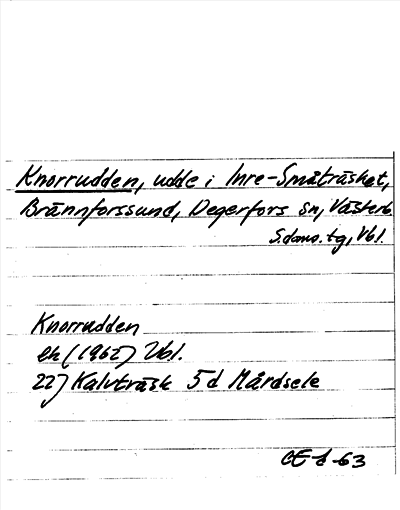 Knorrudden, udde i Inre-Småträsket,
Brännforssund, Degerfors sn, Västerb.
S. doms. tg, Vbl.
Knorrudden
ek (1962) Vbl.
22J Kalvträsk 5d Mårdsele
63